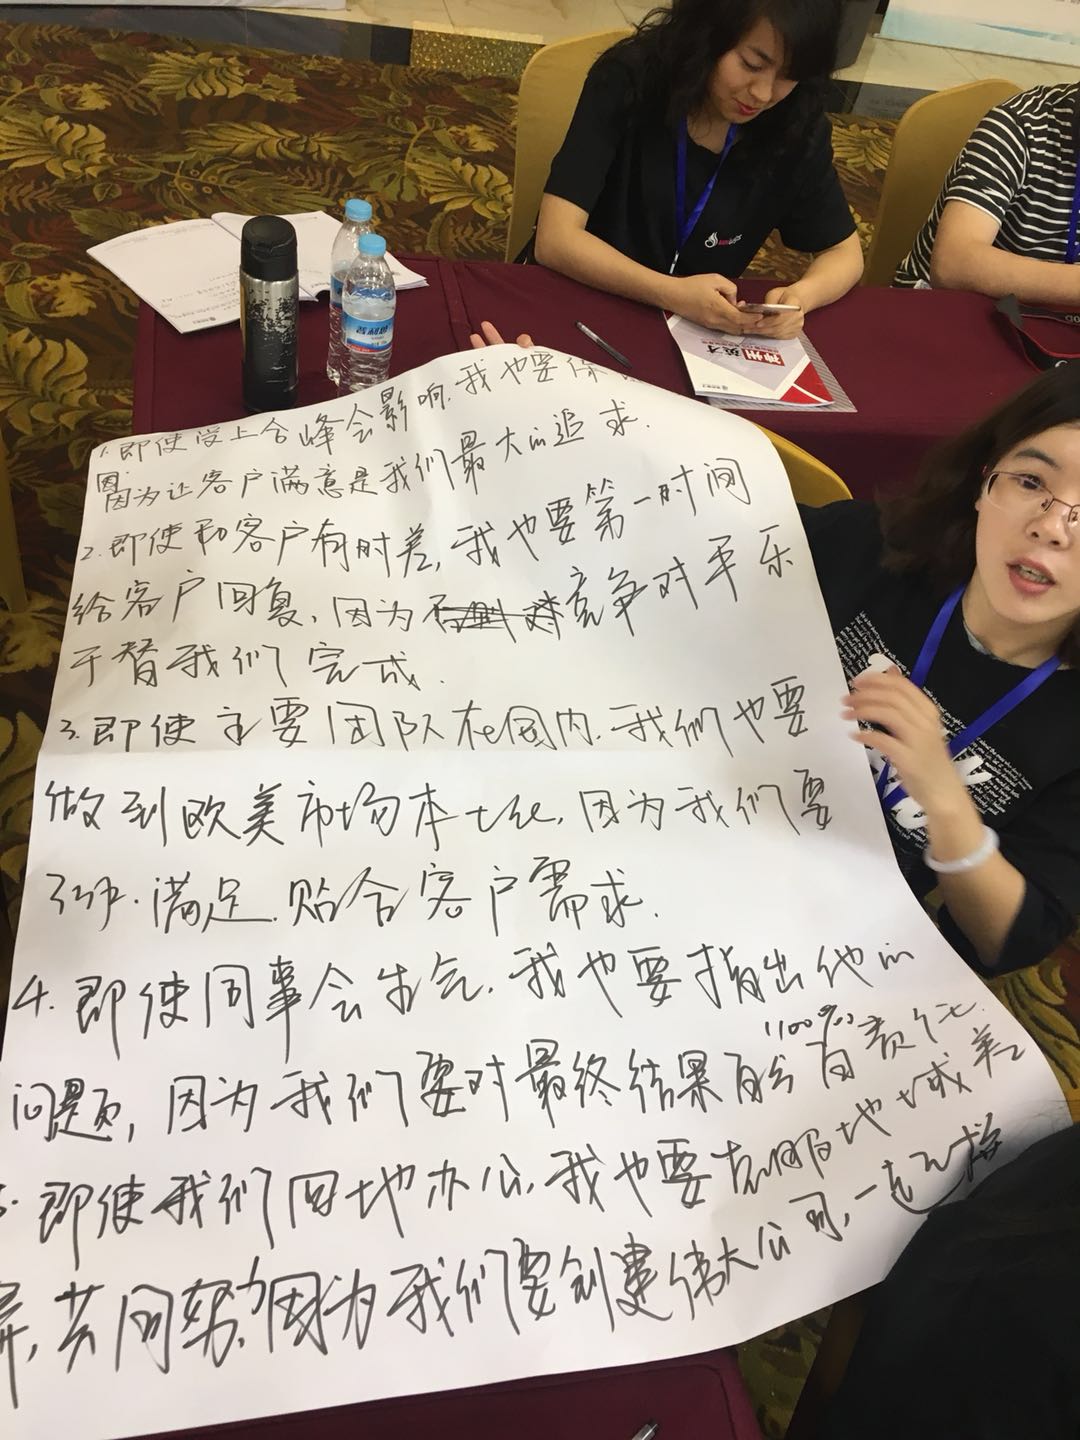 1.即使受上合峰会影响.我也要保
因为让客户满意是我们最大的追求.
2.即使和客户有时差,我也要第一时间
给客户回复,因为竞争对手乐
于替我们完成.
3.即使主要团队在国内.我们也要
做到欧美市场本土化,因为我们要
满足.贴合客户需求.
4.即使同事会生气.我也要指出他的
问题,因为我们要对最终结果百分百负责任.
100%
即使我们四地办公,我也要克服地域差
异,共同努力,因为我们要创建伟大公司,一起
神州英才